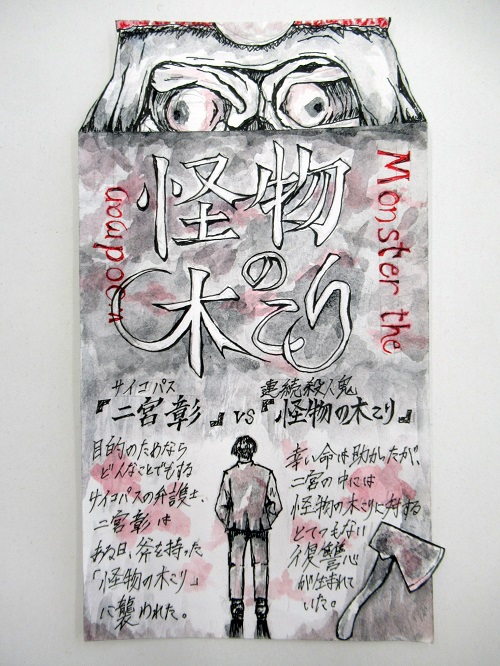 怪物
の
木こり
Monster the
woodman
サイコパス
『二宮彰』 vs
連続殺人鬼
『怪物の木こり』
目的のためなら
どんなことでもする
サイコパスの弁護士、
二宮彰は
ある日、斧を持った
「怪物の木こり」
に襲われた。
幸い命は助かったが、
二宮の中には
怪物の木こりに対する
とてつもない
復讐心
が生まれて
いた。